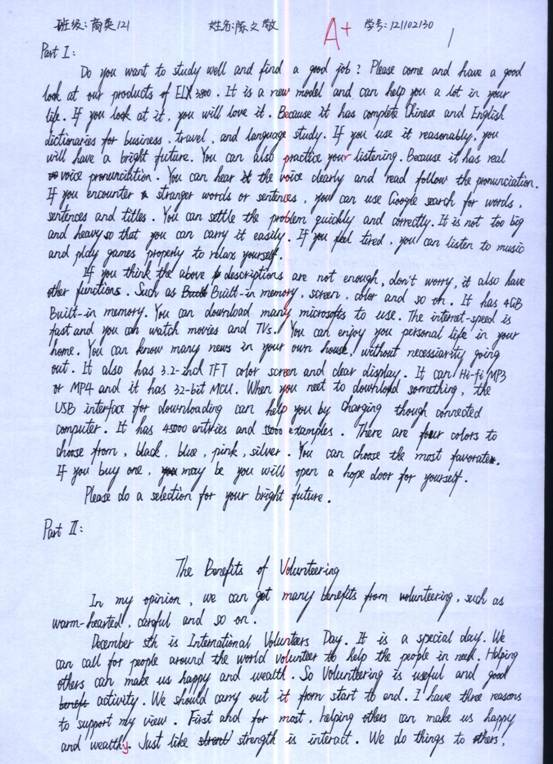 班级: 商英121 姓名: 陈文敏 A+ 学号: 121102130 1
Part I:
Do you want to study well and find a good job? Please come and have a good
look at our products of ELX 3200. It is a new model and can help you a lot in your
life. If you look at it, you will love it. Because it has complete Chinese and English
dictionaries for business, travel, and language study. If you use it reasonably, you
will have a bright future. You can also practice your listening. Because it has real
voice pronuncitition. You can hear the voice clearly and read follow the pronunciation.
If you encounter stranger words or sentences, you can use Google search for words,
sentences and titles. You can settle the problem quickly and correctly. It is not too big
and heavy so that you can carry it easily. If you feel tired, you can listen to music
and play games properly to relax yourself.
If you think the above descriptions are not enough, don't worry, it also have
other functions. Such as Built-in memory, screen, color and so on. It has 4GB
Built-in memory. You can download many microsofts to use. The internet-speed is
fast and you can watch movies and TVs. You can enjoy you personal life in your
home. You can know many news in your own house, without necessiarity going
out. It also has 3.2-inch TFT color screen and clear display. It can Hi-fi MP3
or MP4 and it has 32-bit MCU. When you neet to download something, the
USB interface for downloading can help you by charging though connected
computer. It has 45000 entries and examples. There are four colors to
choose from, black, blue, pink, silver. You can choose the most favorate.
If you buy one, you may be you will open a hope door for yourself.
Please do a selection for your bright future.
Part II:
The Benefits of Volunteering
In my opinion, we can get many benefits from volunteering, such as
warm-hearted, careful and so on.
December 5th is International Volunteers Day. It is a special day. We
can call for people around the world volunteer to help the people in need. Helping
others can make us happy and wealth. So Volunteering is useful and good
activity. We should carry out it from start to end. I have three reasons
to support my view. First and for most, helping others can make us happy
and wealthy. Just like strength is interact. We do things to others,